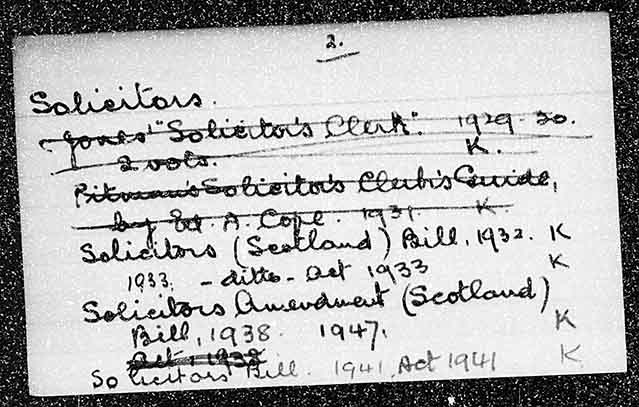 2.
Solicitors.
Jones' "Solicitor's Clerk". 1929-30.
2 vols. K.
Pitman's Solicitor's Clerk's Guide,
by Ed. A. Cope. 1931. K
Solicitors (Scotland) Bill, 1932. K
1933. - ditto - Act 1933 K
Solicitors Amendment (Scotland)
Bill, 1938. 1947. K
Act, 1938
Solicitors Bill. 1941, Act 1941 K